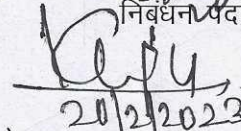 निबंधन पद
20/2/2023